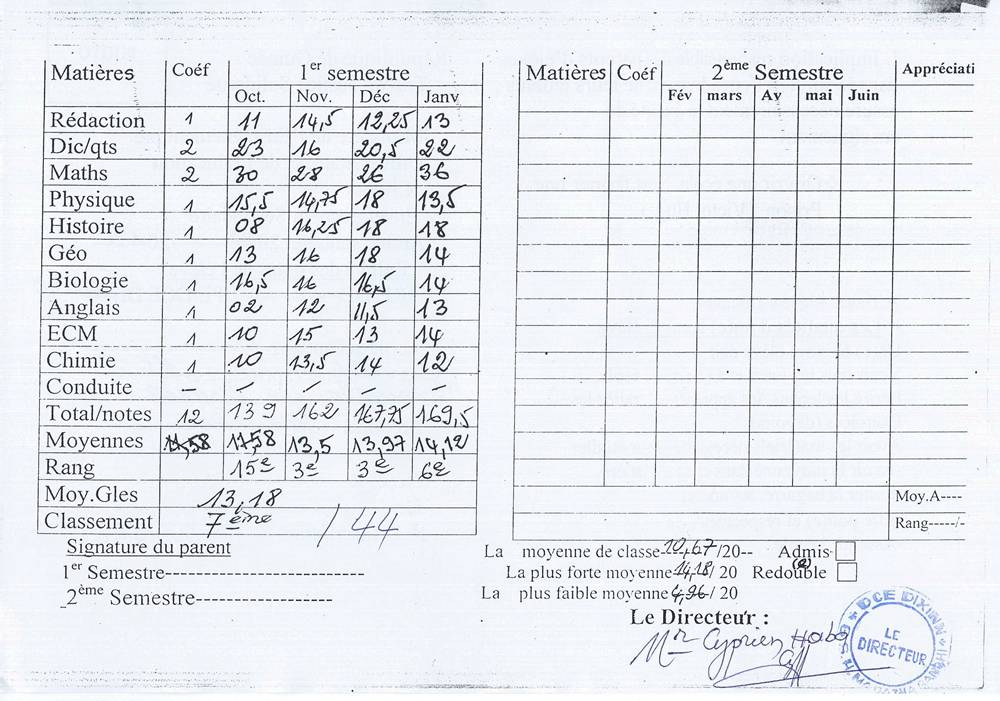 Matières Coéf 1er semestre
Oct. Nov. Déc Janv
Rédaction 1 11 14,5 12,25 13
Dic/qts 2 23 16 20,5 22
Maths 2 30 28 26 36
Physique 1 15,5 14,75 18 13,5
Histoire 1 08 16,25 18 18
Géo 1 13 16 18 14
Biologie 1 16,5 16 16,5 14
Anglais 1 02 12 11,5 13
ECM 1 10 15 13 14
Chimie 1 10 13,5 14 12
Conduite – – – – –
Total/notes 12 139 162 167,75 169,5
Moyennes 11,58 11,58 13,5 13,97 14,12
Rang 15e 3e 3e 6e
Moy.Gles 13,18
Classement 7ème /44
Signature du parent
1er Semestre-------------------------
2ème Semestre--------------------
Matières Coéf 2ème Semestre Appréciati
Fév mars Av mai Juin
Moy.A----
Rang-----/-
La moyenne de classe-10,67/20-- Admis
La plus forte moyenne 14,18/ 20 Redouble(e)
La plus faible moyenne 4,96/ 20
Le Directeur :
Mr Cyprien Habo
DCE DIXINN
LE
DIRECTEUR